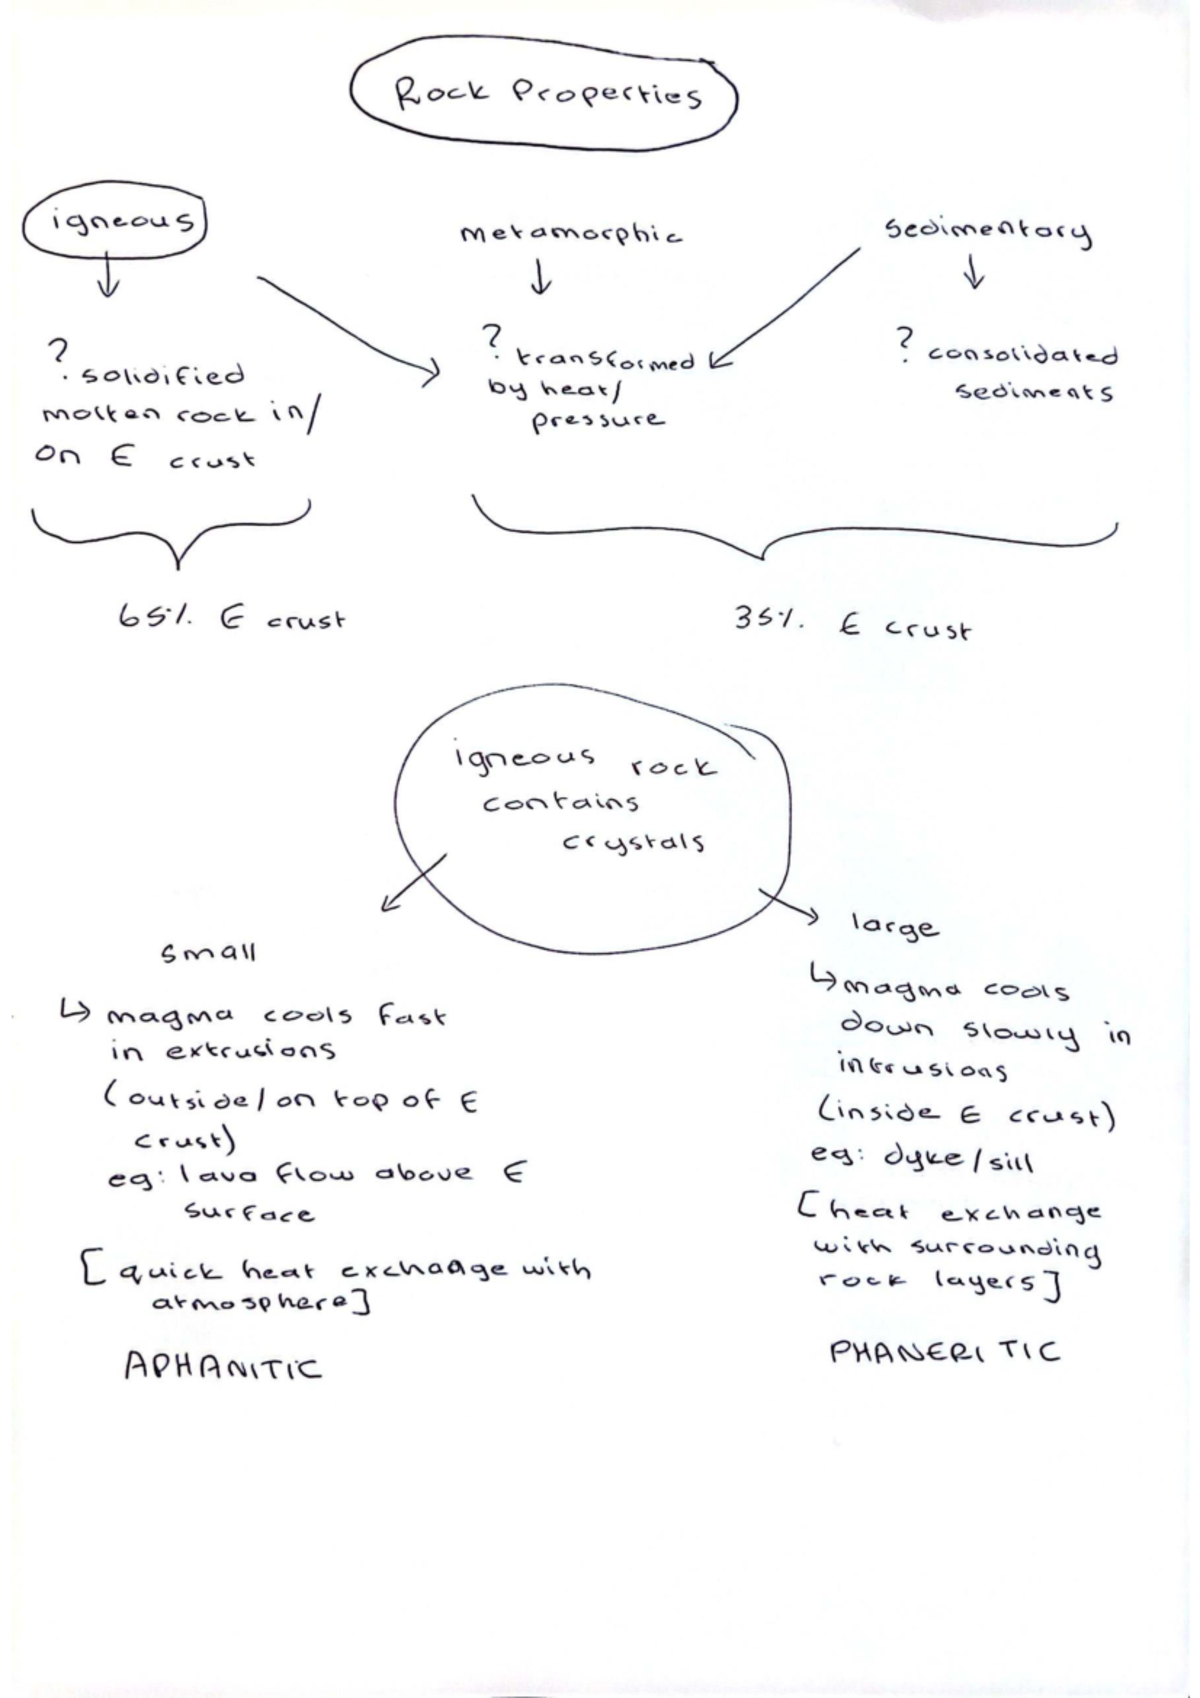 Rock Properties
igneous
metamorphic
sedimentary
? solidified
molten rock in/
on E crust
? transformed
by heat/
pressure
? consolidated
sediments
65% E crust
35% E crust
igneous rock
contains
crystals
small
↳ magma cools fast
in extrusions
(outside/on top of E
crust)
eg: lava flow above E
surface
[quick heat exchange with
atmosphere]
APHANITIC
large
↳ magma cools
down slowly in
intrusions
(inside E crust)
eg: dyke/sill
[heat exchange
with surrounding
rock layers]
PHANERITIC